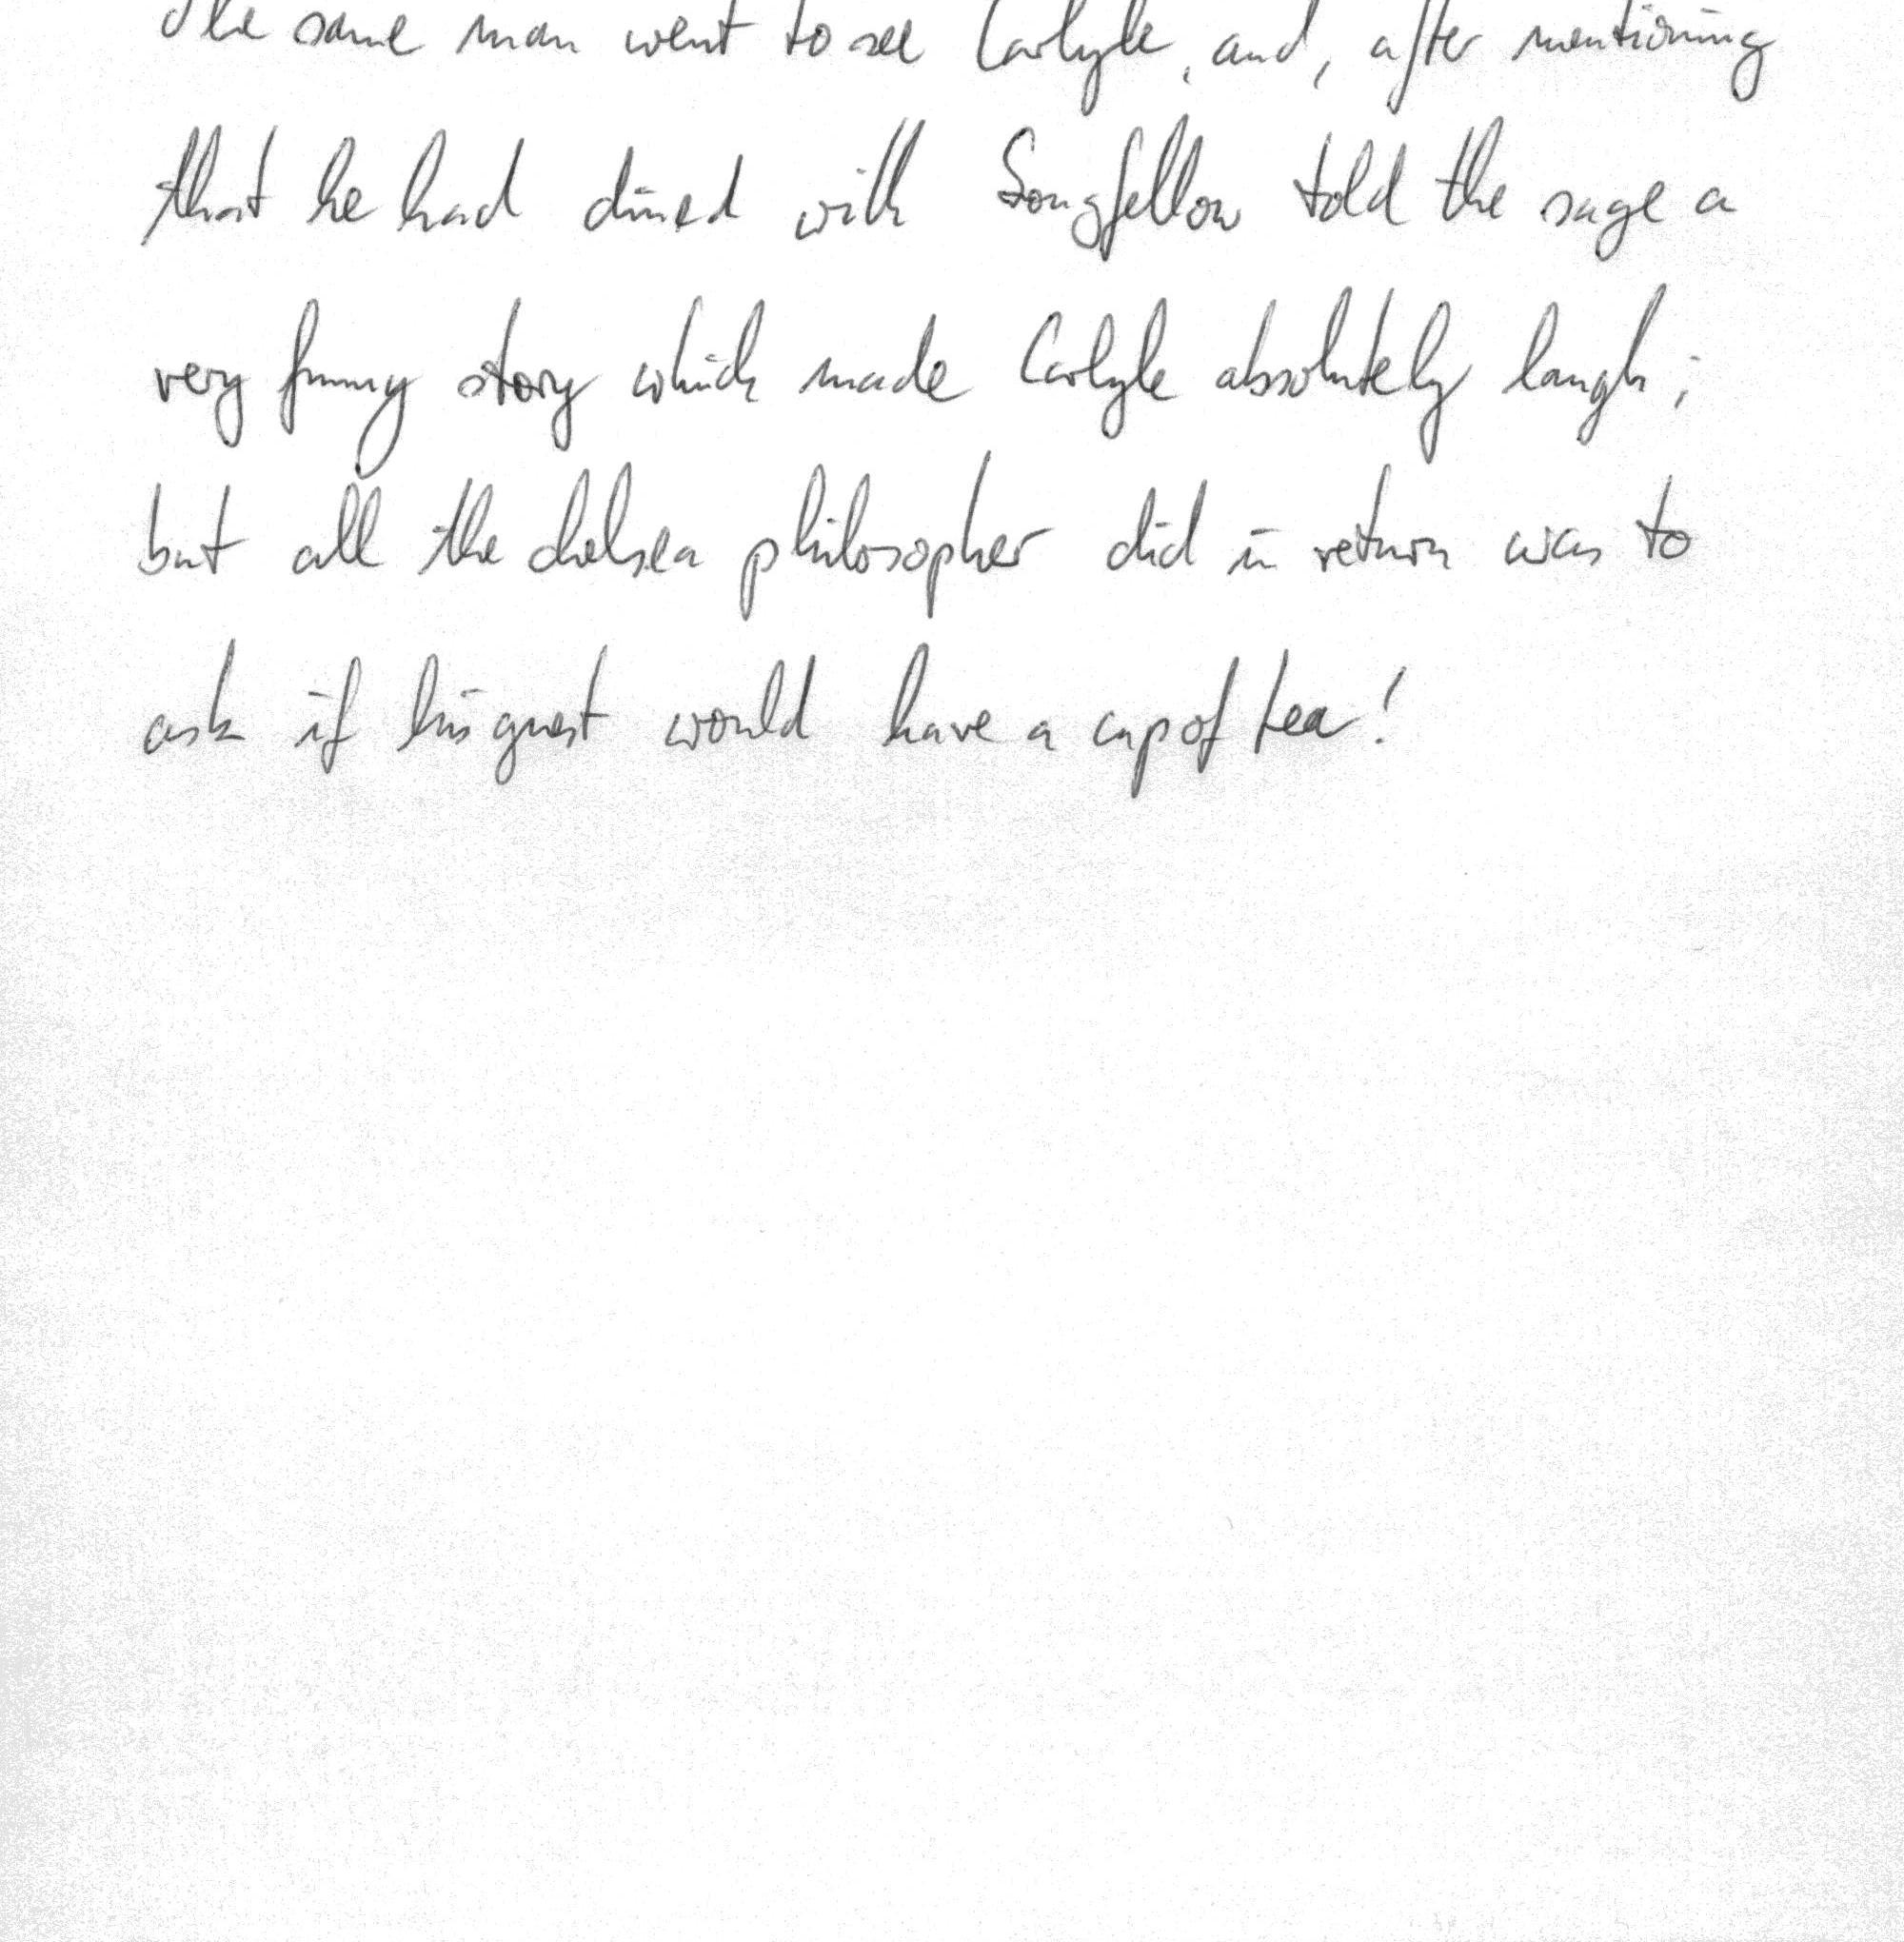 The same man went to see Carlyle, and, after mentioning
that he had dined with Longfellow told the sage a
very funny story which made Carlyle absolutely laugh;
but all the chelsea philosopher did in return was to
ask if his guest would have a cup of tea!